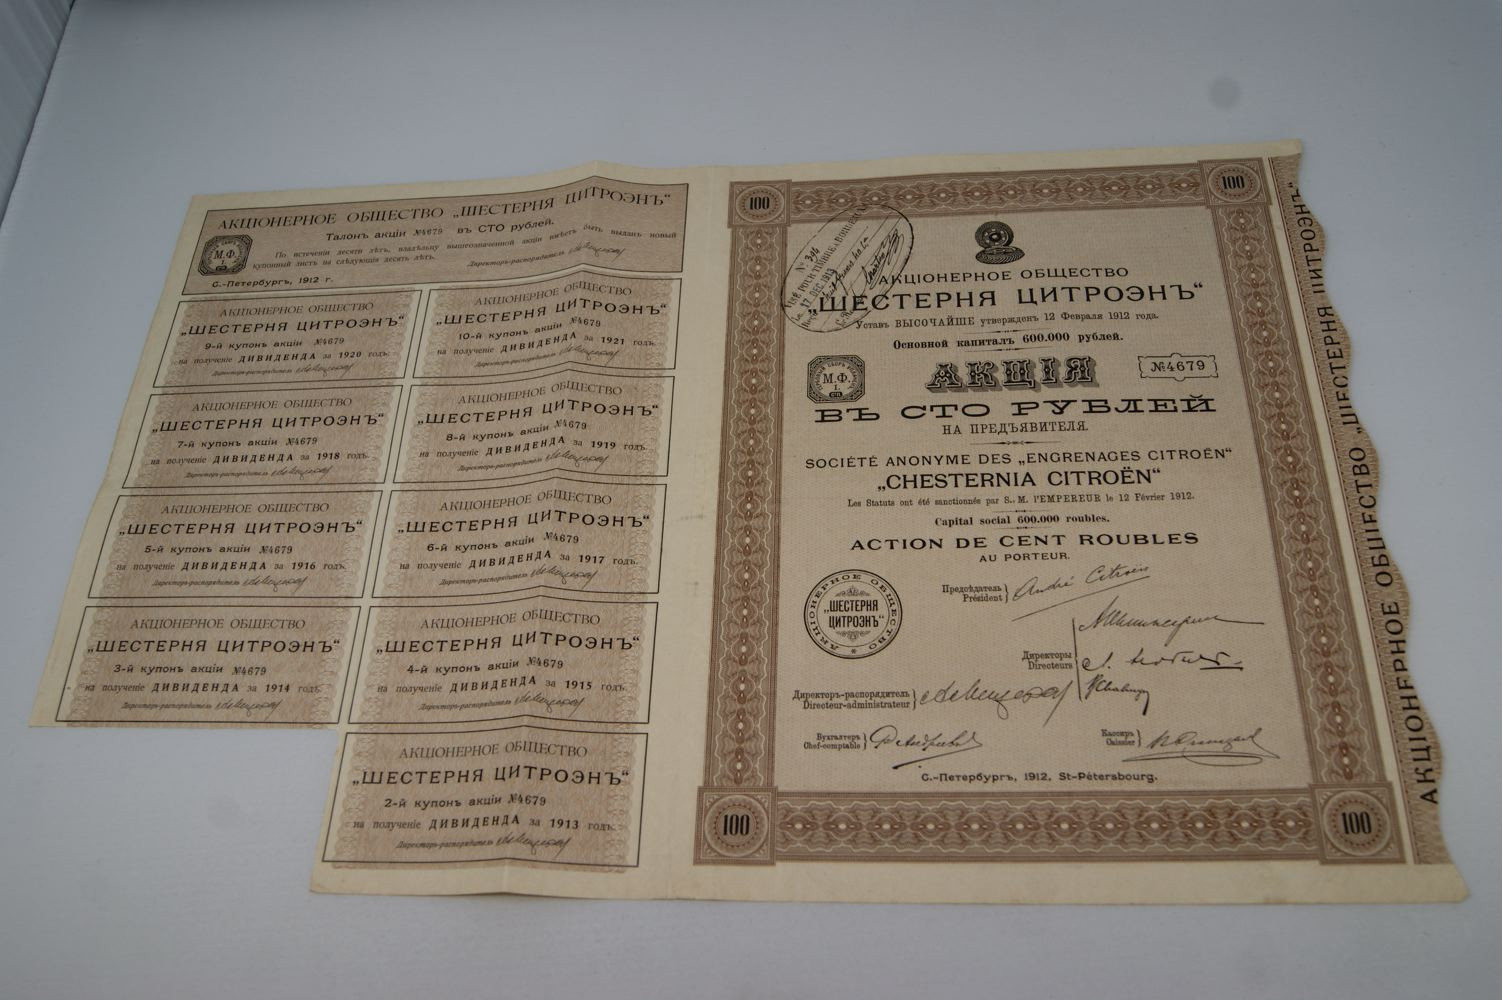 АКЦІОНЕРНОЕ ОБЩЕСТВО „ШЕСТЕРНЯ ЦИТРОЭНЪ“
Талонъ акціи №4679 въ СТО рублей.
М.Ф.
По истеченіи десяти лѣтъ, владѣльцу вышеозначенной акціи имѣетъ быть выданъ новый
купонный листъ на слѣдующія десять лѣтъ.
Директоръ-распорядитель
С.-Петербургъ, 1912 г.
АКЦІОНЕРНОЕ ОБЩЕСТВО
„ШЕСТЕРНЯ ЦИТРОЭНЪ“
9-й купонъ акціи №4679
на полученіе ДИВИДЕНДА за 1920 годъ.
Директоръ-распорядитель
АКЦІОНЕРНОЕ ОБЩЕСТВО
„ШЕСТЕРНЯ ЦИТРОЭНЪ“
10-й купонъ акціи №4679
на полученіе ДИВИДЕНДА за 1921 годъ.
Директоръ-распорядитель
АКЦІОНЕРНОЕ ОБЩЕСТВО
„ШЕСТЕРНЯ ЦИТРОЭНЪ“
7-й купонъ акціи №4679
на полученіе ДИВИДЕНДА за 1918 годъ.
Директоръ-распорядитель
АКЦІОНЕРНОЕ ОБЩЕСТВО
„ШЕСТЕРНЯ ЦИТРОЭНЪ“
8-й купонъ акціи №4679
на полученіе ДИВИДЕНДА за 1919 годъ.
Директоръ-распорядитель
АКЦІОНЕРНОЕ ОБЩЕСТВО
„ШЕСТЕРНЯ ЦИТРОЭНЪ“
5-й купонъ акціи №4679
на полученіе ДИВИДЕНДА за 1916 годъ.
Директоръ-распорядитель
АКЦІОНЕРНОЕ ОБЩЕСТВО
„ШЕСТЕРНЯ ЦИТРОЭНЪ“
6-й купонъ акціи №4679
на полученіе ДИВИДЕНДА за 1917 годъ.
Директоръ-распорядитель
АКЦІОНЕРНОЕ ОБЩЕСТВО
„ШЕСТЕРНЯ ЦИТРОЭНЪ“
3-й купонъ акціи №4679
на полученіе ДИВИДЕНДА за 1914 годъ.
Директоръ-распорядитель
АКЦІОНЕРНОЕ ОБЩЕСТВО
„ШЕСТЕРНЯ ЦИТРОЭНЪ“
4-й купонъ акціи №4679
на полученіе ДИВИДЕНДА за 1915 годъ.
Директоръ-распорядитель
АКЦІОНЕРНОЕ ОБЩЕСТВО
„ШЕСТЕРНЯ ЦИТРОЭНЪ“
2-й купонъ акціи №4679
на полученіе ДИВИДЕНДА за 1913 годъ.
Директоръ-распорядитель
100
100
АКЦІОНЕРНОЕ ОБЩЕСТВО
„ШЕСТЕРНЯ ЦИТРОЭНЪ“
Уставъ ВЫСОЧАЙШЕ утвержденъ 12 Февраля 1912 года.
Основной капиталъ 600.000 рублей.
М.Ф.
I.
СПБ
АКЦІЯ
№4679
ВЪ СТО РУБЛЕЙ
НА ПРЕДЪЯВИТЕЛЯ.
SOCIÉTÉ ANONYME DES „ENGRENAGES CITROËN“
„CHESTERNIA CITROËN“
Les Statuts ont été sanctionnés par S. M. l'EMPEREUR le 12 Février 1912.
Capital social 600.000 roubles.
ACTION DE CENT ROUBLES
AU PORTEUR.
АКЦІОНЕРНОЕ ОБЩЕСТВО
„ШЕСТЕРНЯ
ЦИТРОЭНЪ“
Предсѣдатель
Président
André Citroën
Директоры
Directeurs
Директоръ-распорядитель
Directeur-administrateur
Бухгалтеръ
Chef-comptable
Кассиръ
Caissier
С.-Петербургъ, 1912, St-Pétersbourg.
100
100
АКЦІОНЕРНОЕ ОБЩЕСТВО „ШЕСТЕРНЯ ЦИТРОЭНЪ“